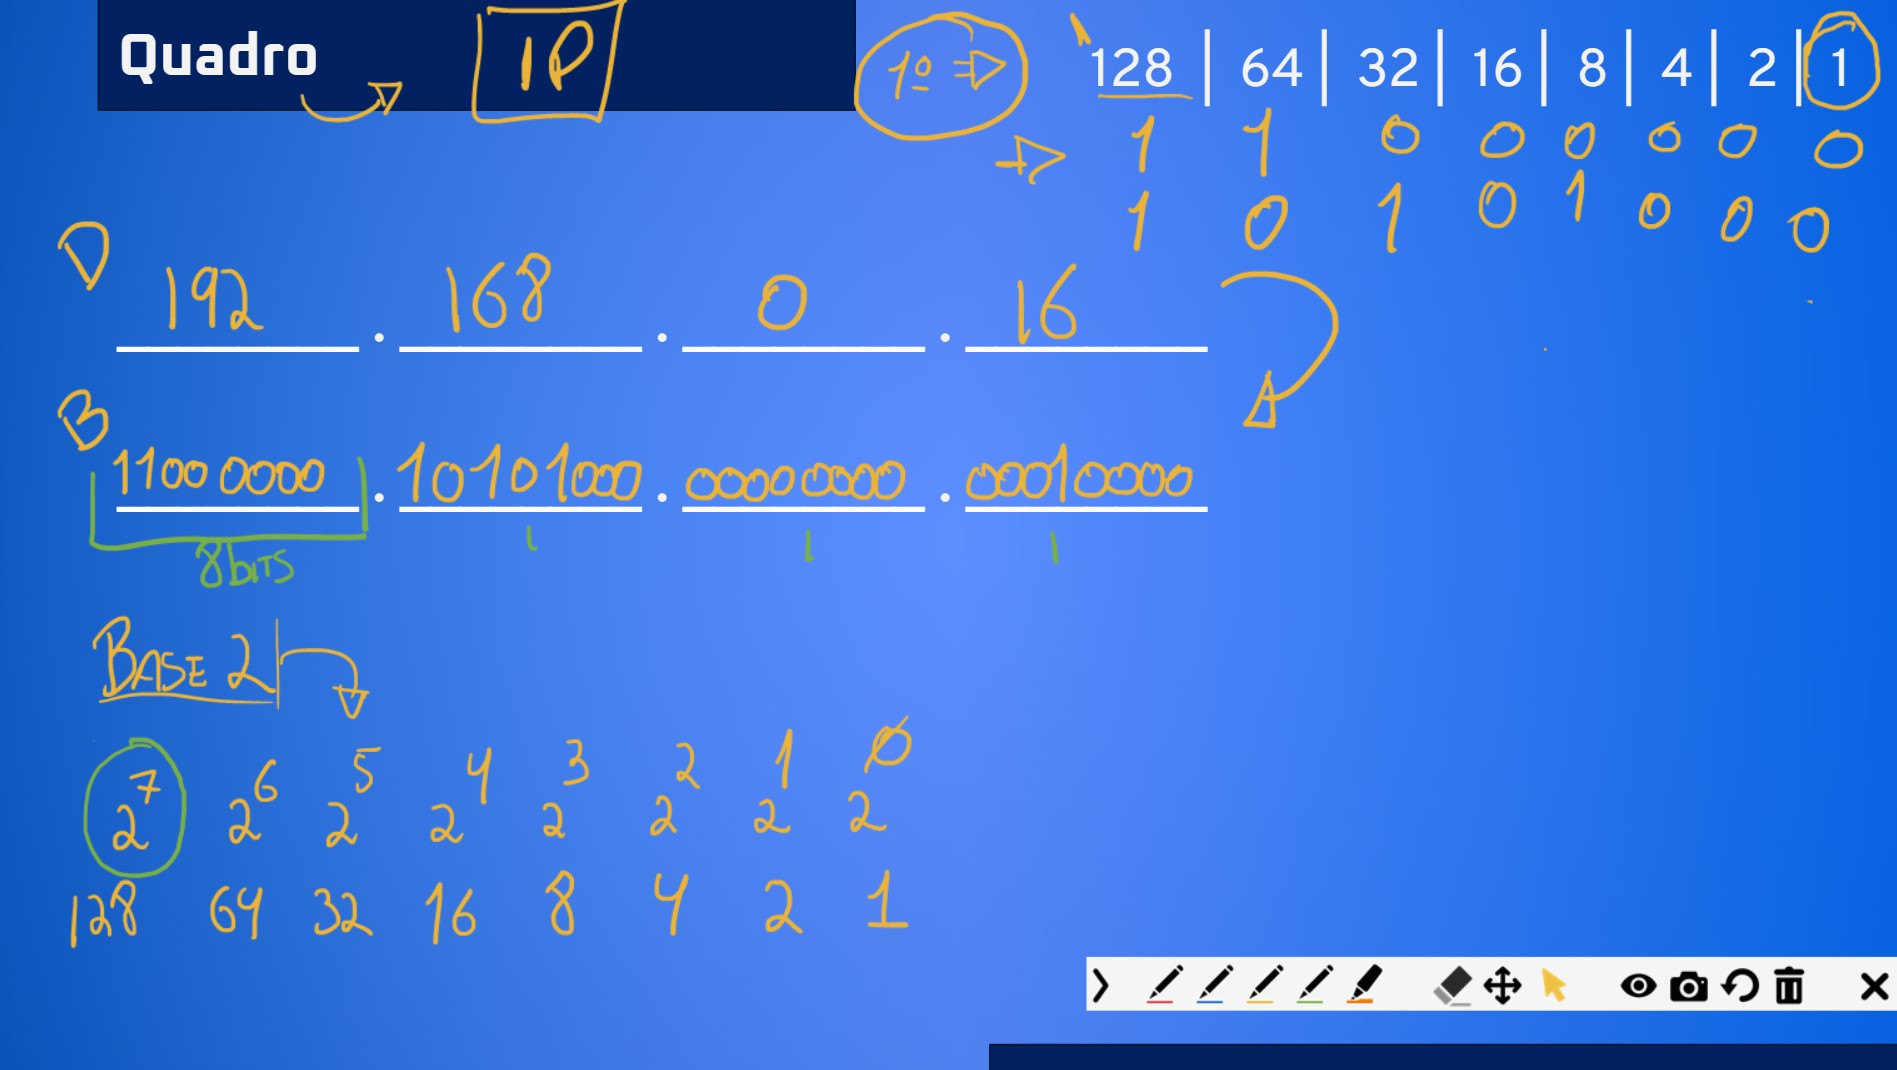 Quadro
IP
1º ⇒ 128 | 64 | 32 | 16 | 8 | 4 | 2 | 1
→ 1 1 0 0 0 0 0 0
1 0 1 0 1 0 0 0
D 192 . 168 . 0 . 16
B 11000000 . 10101000 . 00000000 . 00010000
8 BITS
BASE 2
2⁷ 2⁶ 2⁵ 2⁴ 2³ 2² 2¹ 2⁰
128 64 32 16 8 4 2 1